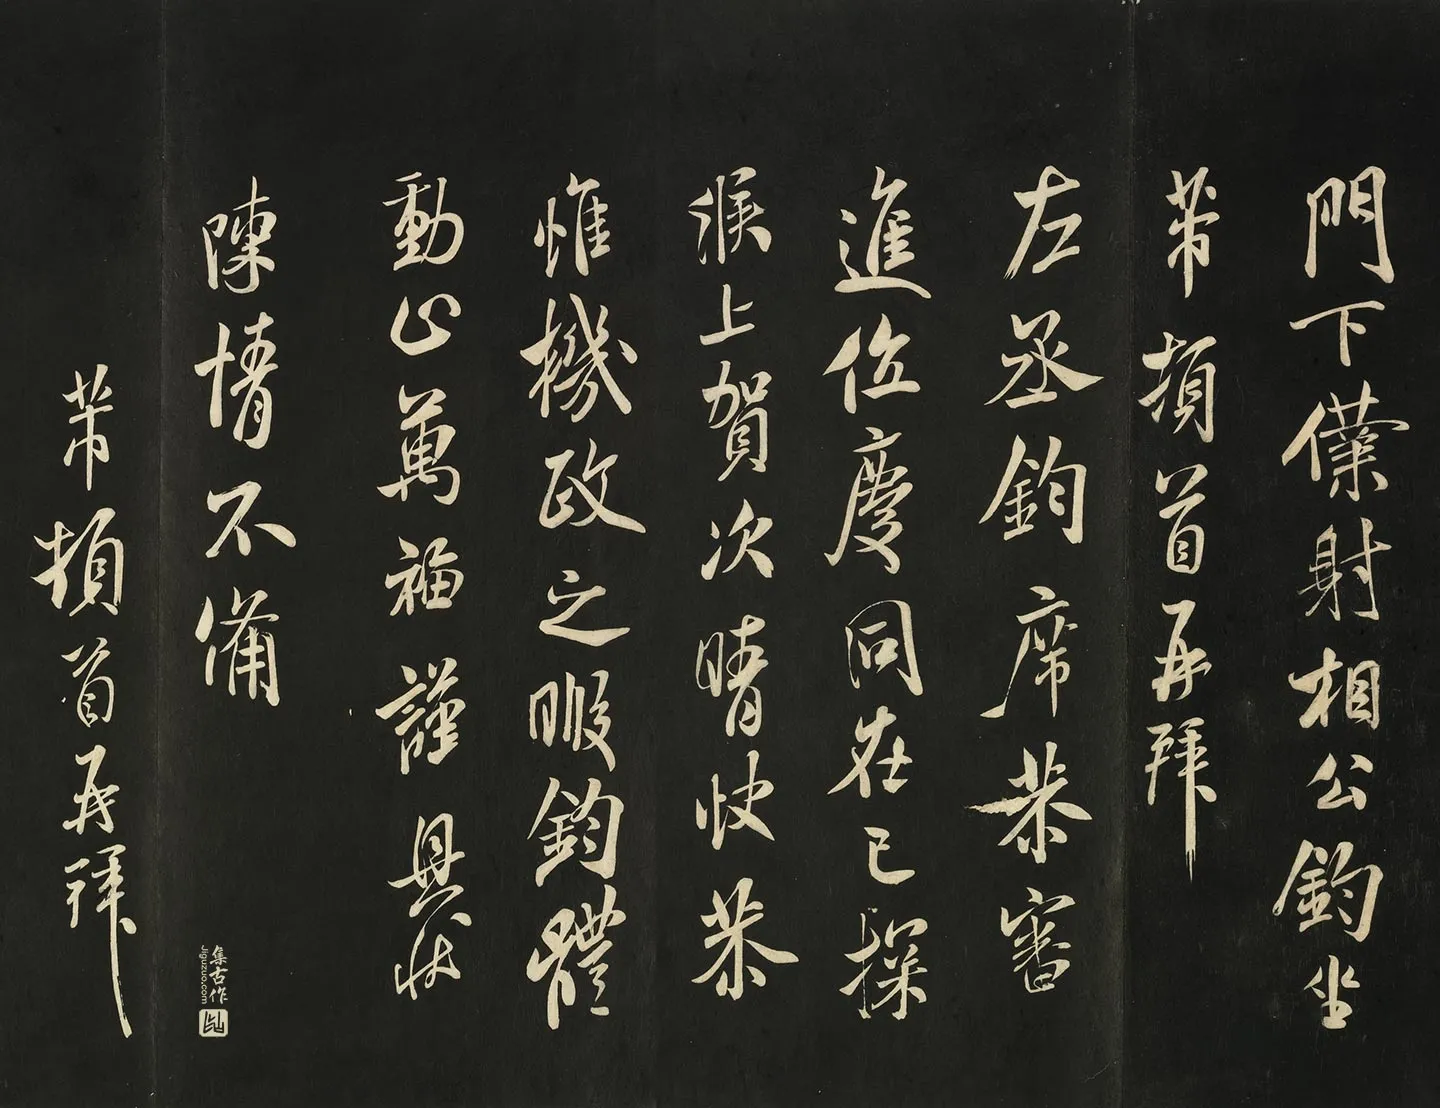 門下僕射相公鈞坐
芾頓首再拜
左丞鈞席恭審
進位慶同在已探
候上賀次晴快恭
惟機政之暇鈞體
動止萬福謹具狀
陳情不備
芾頓首再拜
集古作
Jiguzuo.com